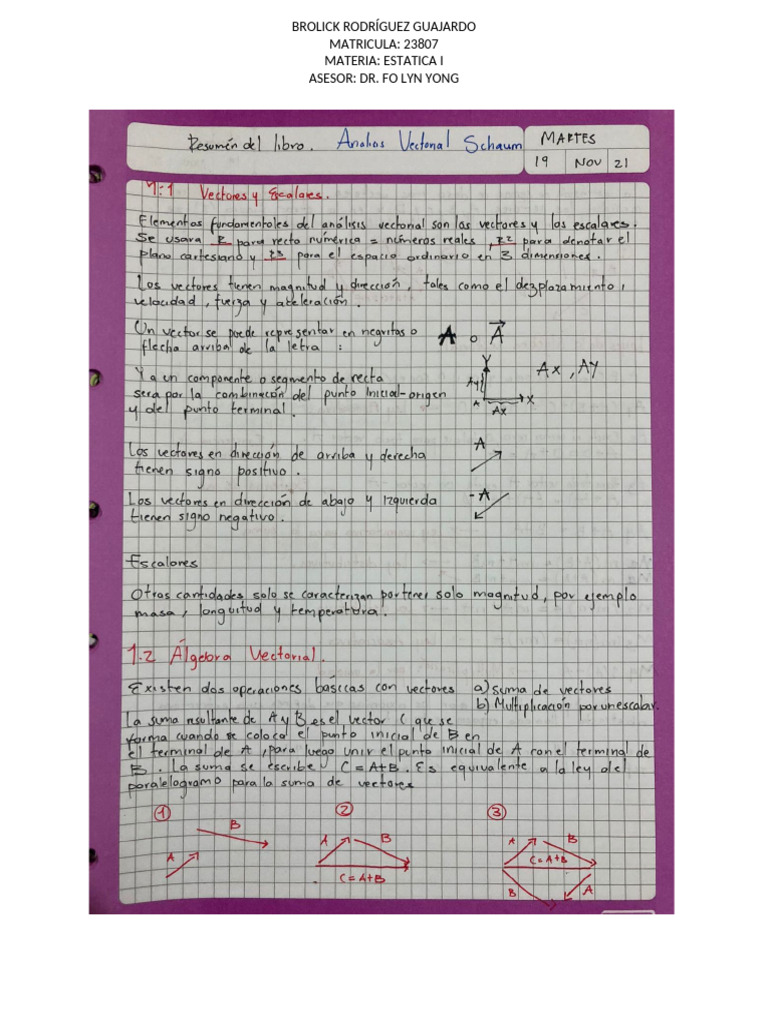 BROLICK RODRÍGUEZ GUAJARDO
MATRICULA: 23807
MATERIA: ESTATICA I
ASESOR: DR. FO LYN YONG
Resumén del libro. Analiss Vectorial Schaum
MARTES
19 NOV 21
1.1 Vectores y Escalares.
Elementos fundamentales del análisis vectorial son los vectores y los escalares.
Se usara R para recto numérica = números reales, R2 para denotar el
plano cartesiano y R3 para el espacio ordinario en 3 dimensiones.
Los vectores tienen magnitud y dirección, tales como el dezplazamiento,
velocidad, fuerza y aceleración.
Un vector se puede representar en negritas o
flecha arriba de la letra :
A o A⃗
Y a un componente o segmento de recta
sera por la combinación del punto Inicial-origen
y del punto terminal.
Y
Ay
A
Ax
X
Ax, AY
Los vectores en dirección de arriba y derecha
tienen signo positivo.
A
Los vectores en dirección de abajo y izquierda
tienen signo negativo.
-A
Escalares
Otras cantidades solo se caracterizan por tener solo magnitud, por ejemplo
masa, longuitud y temperatura.
1.2 Álgebra Vectorial.
Existen dos operaciones basiccas con vectores a) suma de vectores
b) Multiplicación por un escalar.
La suma resultante de A y B es el vector C que se
forma cuando se coloca el punto inicial de B en
el terminal de A, para luego unir el punto inicial de A con el terminal de
B. La suma se escribe C = A+B. Es equivalente a la ley del
paralelogramo para la suma de vectores
1 2 3
A
B
A
B
C = A+B
A
B
C = A+B
B
A